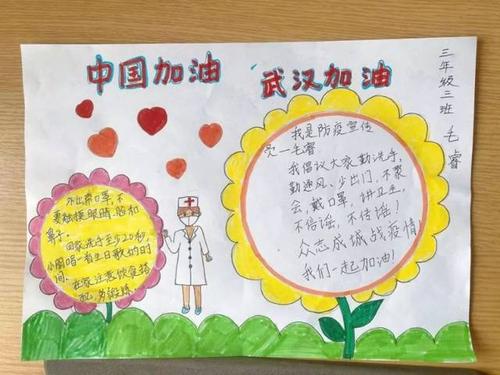 中国加油 武汉加油
三年级三班 毛睿
外出带口罩,不
要触摸眼睛、脸和
鼻子。
回家洗手至少20秒,
小周唱一看生日歌的时
间。
在家注意饮食搭
配,多锻炼
我是防疫宣传
员一毛睿
我倡议大家勤洗手,
勤通风、少出门、不聚
会,戴口罩,讲卫生,
不信谣,不传谣!
众志成城战疫情!
我们一起加油!